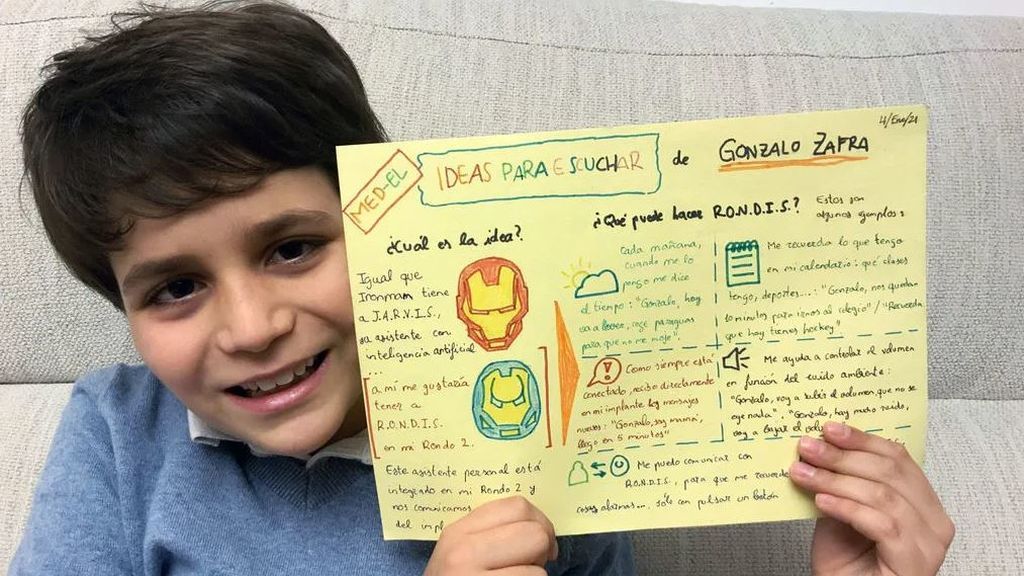 4/Ene/21
MED-EL
IDEAS PARA ESCUCHAR de GONZALO ZAFRA
¿Cuál es la idea?
Igual que
Ironman tiene
a J.A.R.V.I.S.,
su asistente con
inteligencia artificial
...
a mí me gustaría
tener a
R.O.N.D.I.S.
en mi Rondo 2.
Este asistente personal está
integrado en mi Rondo 2 y
nos comunicamos
del
¿Qué puede hacer R.O.N.D.I.S.?
Estos son
algunos ejemplos:
Cada mañana,
cuando me lo
pongo me dice
el tiempo: "Gonzalo, hoy
va a llover, coge paraguas
para que no me moje".
Me recuerda lo que tengo
en mi calendario: qué clases
tengo, deportes...: "Gonzalo, nos quedan
10 minutos para irnos al colegio" / "Recuerda
que hoy tienes hockey"
Como siempre está
conectado, recibo directamente
en mi implante los mensajes
nuevos: "Gonzalo, soy mamá,
llego en 5 minutos"
Me ayuda a controlar el volumen
en función del ruido ambiente:
"Gonzalo, voy a subir el volumen que no se
oye nada", "Gonzalo, hay mucho ruido,
voy a bajar el
Me puedo comunicar con
R.O.N.D.I.S. para que me recuerde
cosas, alarmas... sólo con pulsar un botón